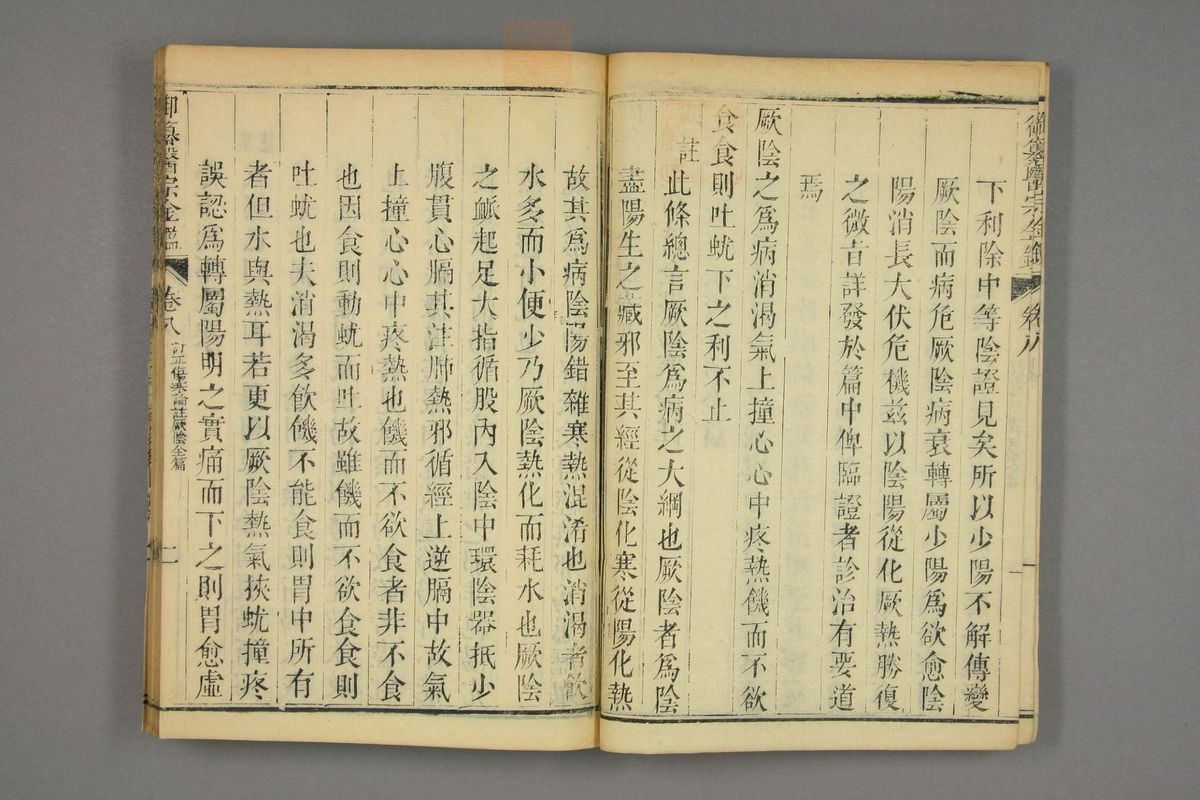 御纂醫宗金鑑 卷八 一
下利除中等陰證見矣所以少陽不解傳變
厥陰而病危厥陰病衰轉屬少陽爲欲愈陰
陽消長大伏危機兹以陰陽從化厥熱勝復
之微旨詳發於篇中俾臨證者診治有要道
焉
厥陰之爲病消渴氣上撞心心中疼熱饑而不欲
食食則吐蚘下之利不止
註此條總言厥陰爲病之大綱也厥陰者爲陰
盡陽生之藏邪至其經從陰化寒從陽化熱
故其爲病陰陽錯雜寒熱混淆也消渴者飲
水多而小便少乃厥陰熱化而耗水也厥陰
之脈起足大指循股內入陰中環陰器抵少
腹貫心膈其注肺熱邪循經上逆膈中故氣
上撞心心中疼熱也饑而不欲食者非不食
也因食則動蚘而吐故雖饑而不欲食食則
吐蚘也夫消渴多飲饑不能食則胃中所有
者但水與熱耳若更以厥陰熱氣挾蚘撞疼
誤認爲轉屬陽明之實痛而下之則胃愈虛
御纂醫宗金鑑 卷八 訂正傷寒論註厥陰全篇 二